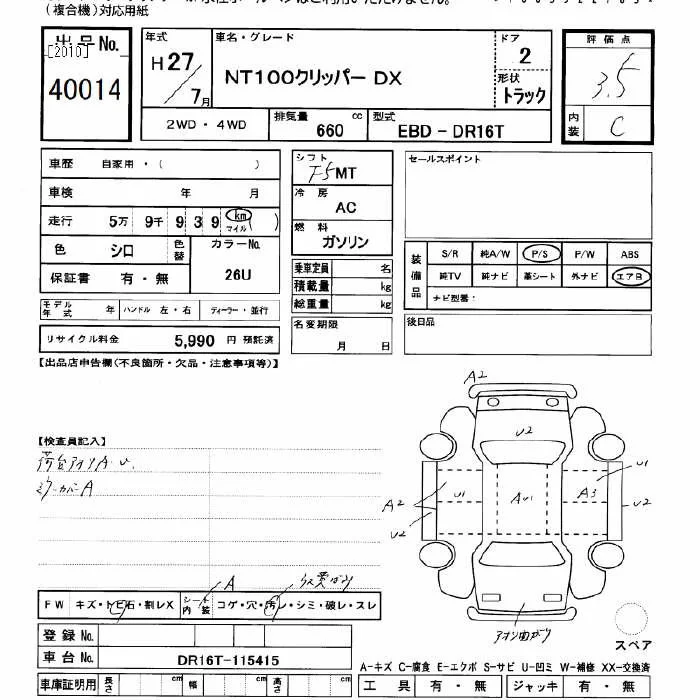 (複合機)対応用紙
出品No.
[2010]
40014
年式
H27/7月
車名・グレード
NT100クリッパー DX
ドア
2
形状
トラック
評価点
3.5
内装
C
2WD・4WD
排気量
660 cc
型式
EBD-DR16T
車歴 自家用・( )
車検 年 月
走行 5万 9千 9 3 9 km マイル ( )
色 シロ 色替 カラーNo. 26U
保証書 有・無
モデル年式 年 ハンドル 左・右 ディーラー・並行
リサイクル料金 5,990 円 預託済
シフト
F5MT
冷房
AC
燃料
ガソリン
乗車定員 名
積載量 kg
総重量 kg
名変期限
月 日
セールスポイント
装備品
S/R 純A/W P/S P/W ABS
純TV 純ナビ 革シート 外ナビ エアB
ナビ型番:
後日品
【出品店申告欄(不良箇所・欠品・注意事項等)】
【検査員記入】
荷台アオリA・U
ミラーカバーA
A2
U2
U1
A2
U1
AU1
A3
U2
U2
アオリ曲がり
スペア
A
FW キズ・トビ石・割レX シート内装 コゲ・穴・汚レ・シミ・破レ・スレ
登録No.
車台No. DR16T-115415
車庫証明用 長さ cm 幅 cm 高さ cm
A-キズ C-腐食 E-エクボ S-サビ U-凹ミ W-補修 XX-交換済
工具 有・無 ジャッキ 有・無